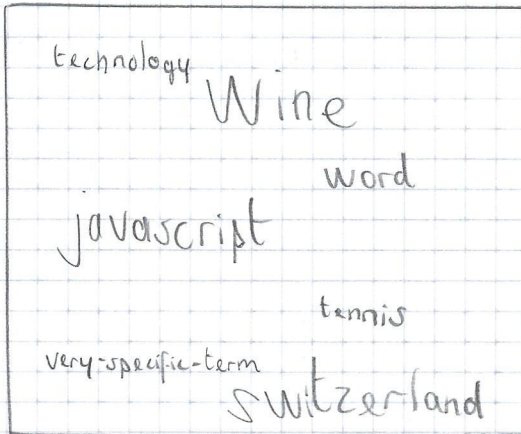 technology
Wine
word
javascript
tennis
very-specific-term
switzerland